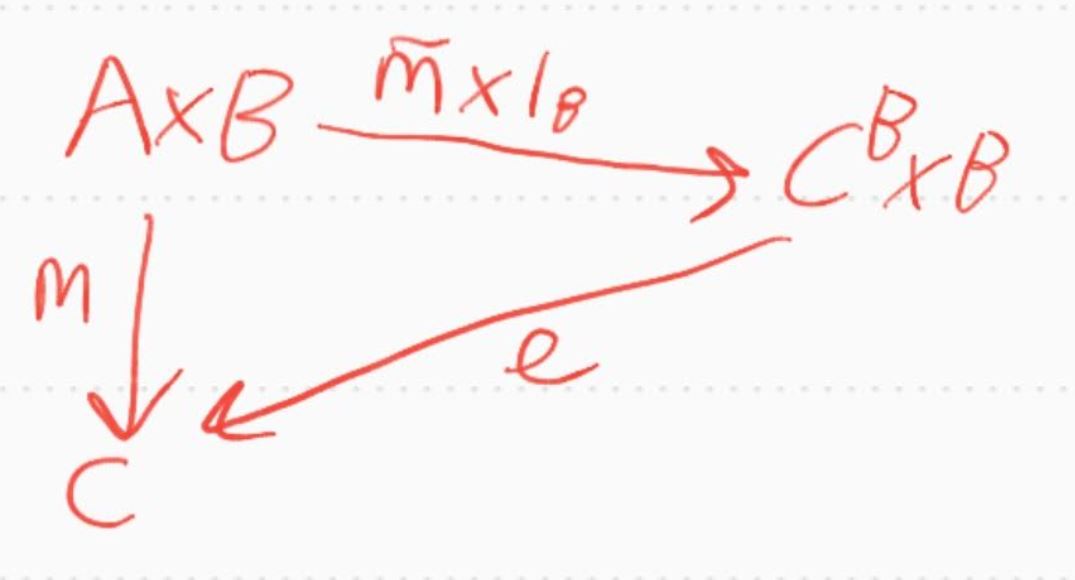 A×B m̃×1_B C^B×B
m
e
C